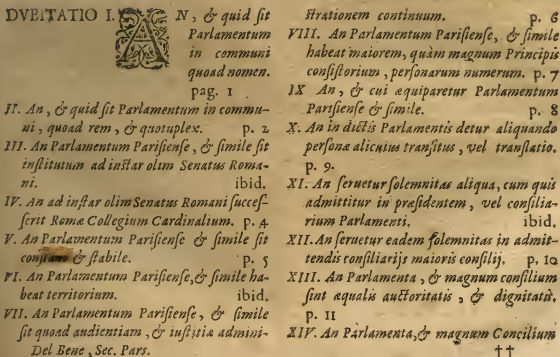 DVBITATIO I. AN, & quid sit
Parlamentum
in communi
quoad nomen.
pag. 1
II. An, & quid sit Parlamentum in commu-
ni, quoad rem, & quotuplex. p. 2
III. An Parlamentum Parisiense, & simile sit
institutum ad instar olim Senatus Roma-
ni. ibid.
IV. An ad instar olim Senatus Romani succes-
serit Romæ Collegium Cardinalium. p. 4
V. An Parlamentum Parisiense & simile sit
constans & stabile. p. 5
VI. An Parlamentum Parisiense, & simile ha-
beat territorium. ibid.
VII. An Parlamentum Parisiense, & simile
sit quoad audientiam, & iustitiæ admini-
Del Bene, Sec. Pars.
strationem continuum. p. 6
VIII. An Parlamentum Parisiense, & simile
habeat maiorem, quàm magnum Principis
consistorium, personarum numerum. p. 7
IX An, & cui æquiparetur Parlamentum
Parisiense & simile. p. 8
X. An in dictis Parlamentis detur aliquando
personæ alicuius transitus, vel translatio.
p. 9.
XI. An seruetur solemnitas aliqua, cum quis
admittitur in præsidentem, vel consilia-
rium Parlamenti. ibid.
XII. An seruetur eadem solemnitas in admit-
tendis consiliarijs maioris consilij. p. 10
XIII. An Parlamenta, & magnum consilium
sint æqualis auctoritatis, & dignitatis.
p. 11
XIV. An Parlamenta, & magnum Concilium
††